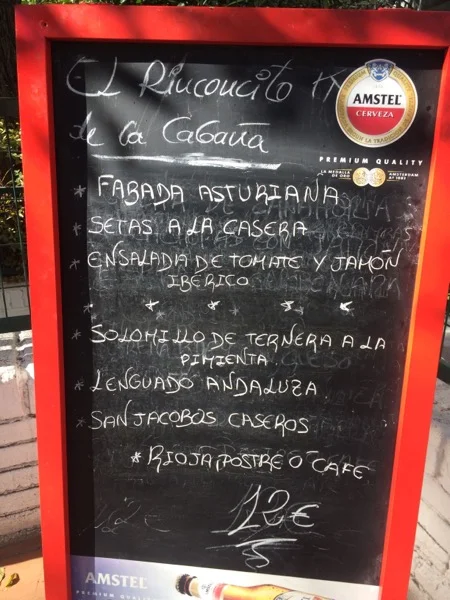 El Rinconcito
de la Cabaña
AMSTEL
CERVEZA
PREMIUM QUALITY
LA MEDALLA DE ORO AMSTERDAM AÑO 1883
* FABADA ASTURIANA
* SETAS A LA CASERA
* ENSALADA DE TOMATE Y JAMÓN
IBERICO
* * * * *
* SOLOMILLO DE TERNERA A LA
PIMIENTA
* LENGUADO ANDALUZA
* SANJACOBOS CASEROS
* RIOJA, POSTRE O CAFE
12€
AMSTEL
PREMIUM QUALITY